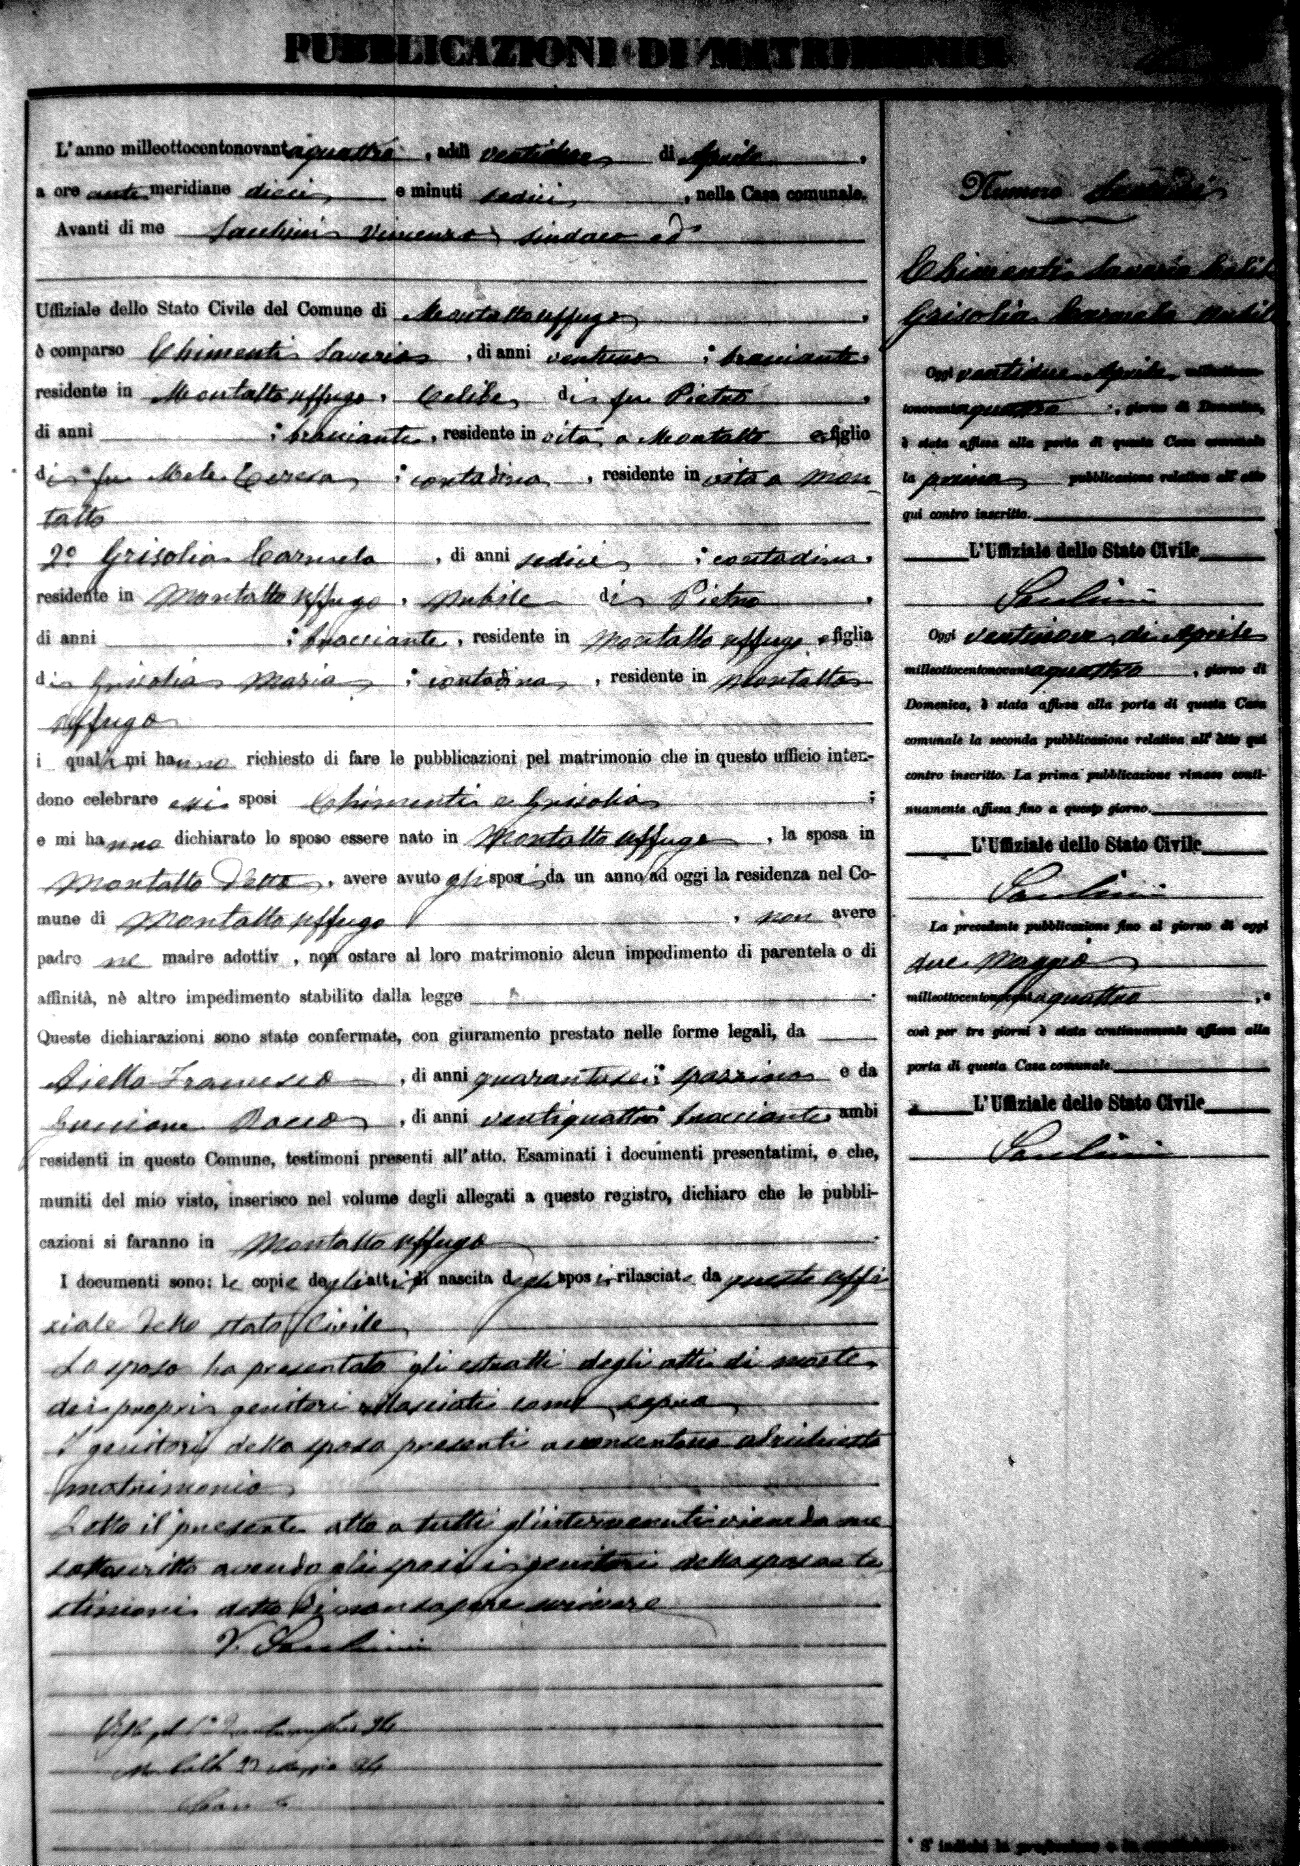 PUBBLICAZIONI DI MATRIMONIO
L'anno milleottocentonovantaquattro, addì ventidue di Aprile,
a ore antemeridiane dieci e minuti sedici, nella Casa comunale.
Avanti di me Vincenzo sindaco ed
Uffiziale dello Stato Civile del Comune di Montalto Uffugo,
è comparso Chimenti Saverio, di anni ventuno; bracciante,
residente in Montalto Uffugo, Celibe di fu Pietro,
di anni ; bracciante, residente in vita a Montalto e figlio
di fu Mele Teresa; contadina, residente in vita a Mon-
talto
2º Grisolia Carmela, di anni sedici; contadina,
residente in Montalto Uffugo, Nubile di Pietro,
di anni ; bracciante, residente in Montalto Uffugo e figlia
di Grisolia Maria; contadina, residente in Montalto
Uffugo
i quali mi hanno richiesto di fare le pubblicazioni pel matrimonio che in questo ufficio inten-
dono celebrare essi sposi Chimenti e Grisolia;
e mi hanno dichiarato lo sposo essere nato in Montalto Uffugo, la sposa in
Montalto detto, avere avuto gli sposi da un anno ad oggi la residenza nel Co-
mune di Montalto Uffugo, non avere
padre nè madre adottiv , non ostare al loro matrimonio alcun impedimento di parentela o di
affinità, nè altro impedimento stabilito dalla legge.
Queste dichiarazioni sono state confermate, con giuramento prestato nelle forme legali, da
Aiello Francesco, di anni quarantasei; spazzino e da
Rocco, di anni ventiquattro; bracciante, ambi
residenti in questo Comune, testimoni presenti all'atto. Esaminati i documenti presentatimi, e che,
muniti del mio visto, inserisco nel volume degli allegati a questo registro, dichiaro che le pubbli-
cazioni si faranno in Montalto Uffugo.
I documenti sono: le copie degli atti di nascita degli sposi rilasciate da questo uffi-
ziale dello stato Civile
Lo sposo ha presentato gli estratti degli atti di morte
dei propri genitori rilasciati come sopra
I genitori della sposa presenti acconsentono al richiesto
matrimonio
Letto il presente atto a tutti gl'intervenuti viene da me
sottoscritto avendo gli sposi i genitori della sposa e te-
stimoni detto di non sapere scrivere
Montalto Maggio 94
Numero
Chimenti Saverio Celibe
Grisolia Carmela Nubile
Oggi ventidue Aprile milleotto-
tonovantaquattro, giorno di Domenica,
è stata affissa alla porta di questa Casa comunale
la prima pubblicazione relativa all'atto
qui contro inscritto.
L'Uffiziale dello Stato Civile
Oggi ventinove di Aprile
milleottocentonovantaquattro, giorno di
Domenica, è stata affissa alla porta di questa Casa
comunale la seconda pubblicazione relativa all'atto qui
contro inscritto. La prima pubblicazione rimase conti-
nuamente affissa fino a questo giorno.
L'Uffiziale dello Stato Civile
La precedente pubblicazione fino al giorno di oggi
due Maggio
milleottocentonovantaquattro, e
così per tre giorni è stata continuamente affissa alla
porta di questa Casa comunale.
L'Uffiziale dello Stato Civile
* S'indichi la professione o la condizione.